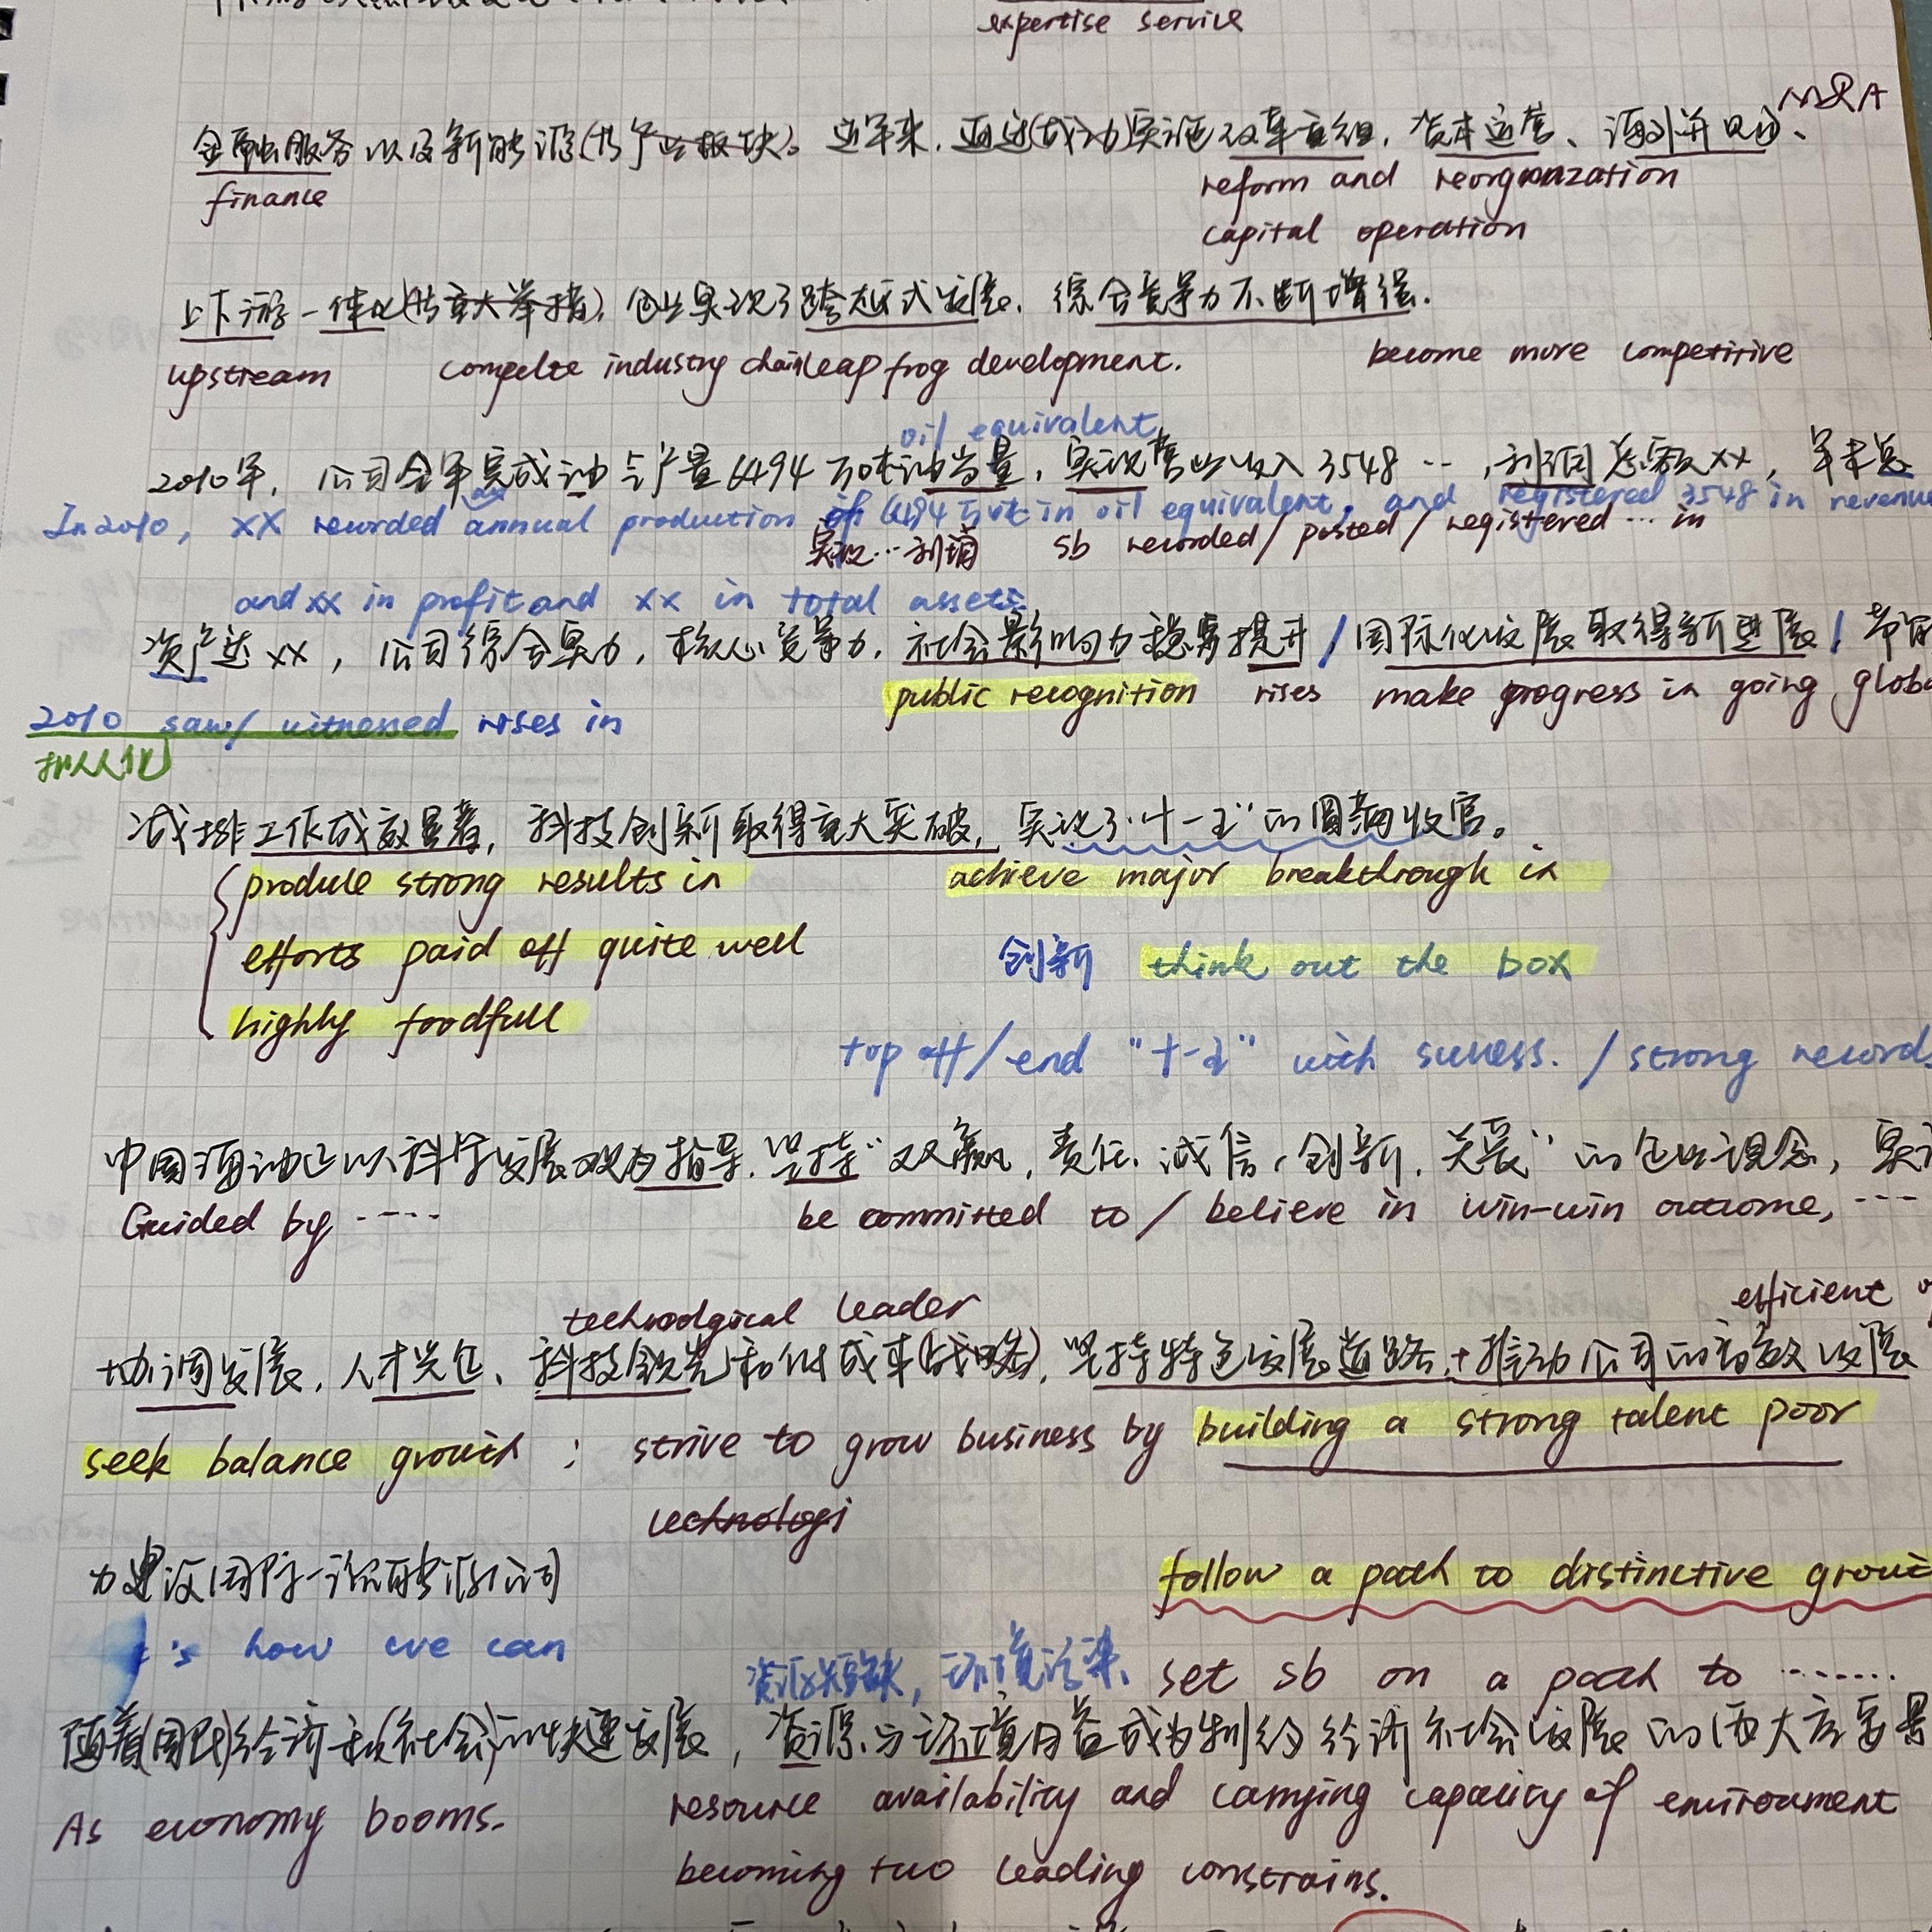 expertise service
M&A
金融服务以及新能源(等产业板块)。近年来,通过(成功)实施改革重组,资本运营、海外并购、
finance
reform and reorgnanzation
capital operation
上下游一体化(等重大举措),企业实现了跨越式发展,综合竞争力不断增强.
upstream compelte industry chain leap frog development. become more competitive
oil equivalent
2010年,公司全年完成油气产量6494万吨油当量,实现营业收入3548 … ,利润总额xx,年末总
In 2010, XX recorded annual production of 6494万吨 in oil equivalent, and registered 3548 in revenue
实现…利润 sb recorded/ posted/ registered … in
and xx in profit and xx in total assets
资产达xx,公司综合实力,核心竞争力,社会影响力稳步提升/国际化发展取得新进展/节能
public recognition rises make progress in going globa
2010 saw/ witnessed rises in
拟人化
减排工作成效显著,科技创新取得重大突破,实现了"十一五"的圆满收官。
produce strong results in achieve major breakthrough in
efforts paid off quite well 创新 think out the box
highly
top off/end "十一五" with success. / strong record
中国海油正以科学发展观为指导,坚持"双赢,责任,诚信,创新,关爱"的企业理念,实
Guided by ····· be committed to / believe in win-win outcome, ----
technodgical leader efficient
协调发展,人才兴企、科技领先和低成本(战略),坚持特色发展道路,+推动公司的高效发展
seek balance growth ; strive to grow business by building a strong talent poor
technologi
力建设国际一流能源公司
follow a path to distinctive growt
's how we can
资源短缺,环境污染, set sb on a path to ·······
随着(国民)经济和(社会)的快速发展,资源与环境日益成为制约经济社会发展的两大主要
As economy booms. resource availability and carrying capacity of environment
becoming two leading constrains.